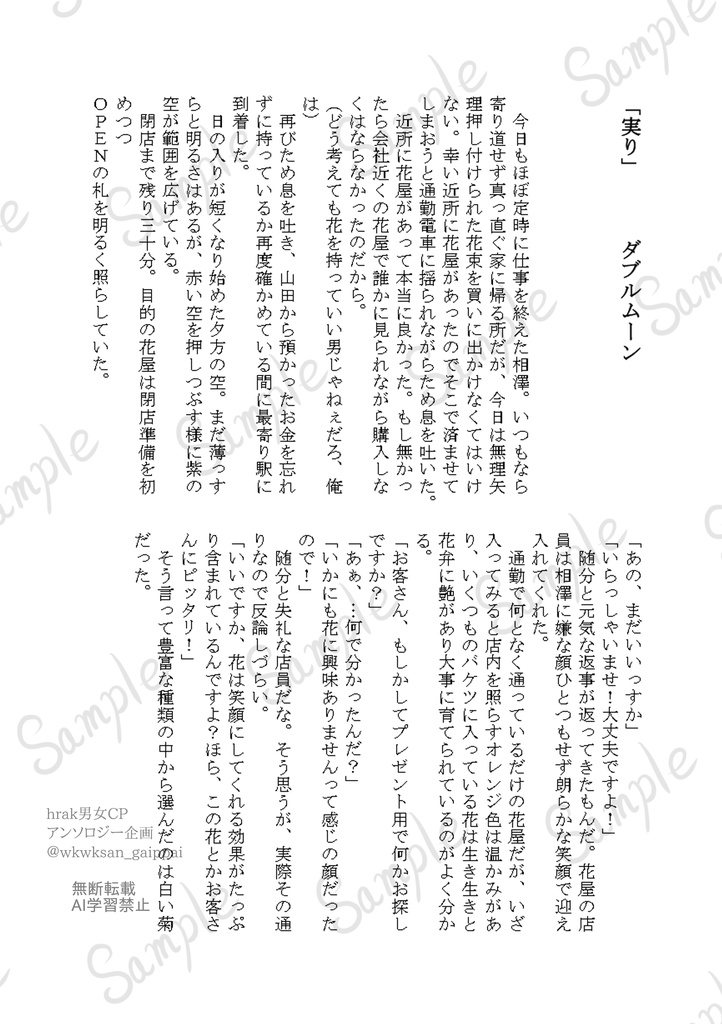 「実り」　　ダブルムーン
今日もほぼ定時に仕事を終えた相澤。いつもなら
寄り道せず真っ直ぐ家に帰る所だが、今日は無理矢
理押し付けられた花束を買いに出かけなくてはいけ
ない。幸い近所に花屋があったのでそこで済ませて
しまおうと通勤電車に揺られながらため息を吐いた。
近所に花屋があって本当に良かった。もし無かっ
たら会社近くの花屋で誰かに見られながら購入しな
くはならなかったのだから。
（どう考えても花を持っていい男じゃねぇだろ、俺
は）
再びため息を吐き、山田から預かったお金を忘れ
ずに持っているか再度確かめている間に最寄り駅に
到着した。
日の入りが短くなり始めた夕方の空。まだ薄っす
らと明るさはあるが、赤い空を押しつぶす様に紫の
空が範囲を広げている。
閉店まで残り三十分。目的の花屋は閉店準備を初
めつつ
ＯＰＥＮの札を明るく照らしていた。
「あの、まだいいっすか」
「いらっしゃいませ！大丈夫ですよ！」
随分と元気な返事が返ってきたもんだ。花屋の店
員は相澤に嫌な顔ひとつもせず朗らかな笑顔で迎え
入れてくれた。
通勤で何となく通っているだけの花屋だが、いざ
入ってみると店内を照らすオレンジ色は温かみがあ
り、いくつものバケツに入っている花は生き生きと
花弁に艶があり大事に育てられているのがよく分か
る。
「お客さん、もしかしてプレゼント用で何かお探し
ですか？」
「あぁ、…何で分かったんだ？」
「いかにも花に興味ありませんって感じの顔だった
ので！」
随分と失礼な店員だな。そう思うが、実際その通
りなので反論しづらい。
「いいですか、花は笑顔にしてくれる効果がたっぷ
り含まれているんですよ？ほら、この花とかお客さ
んにピッタリ！」
そう言って豊富な種類の中から選んだのは白い菊
だった。
hrak男女CP
アンソロジー企画
@wkwksan_gaipnai
無断転載
AI学習禁止
Sample
Sample
Sample
Sample
Sample
Sample
Sample
Sample
Sample
Sample
Sample
Sample
Sample
Sample